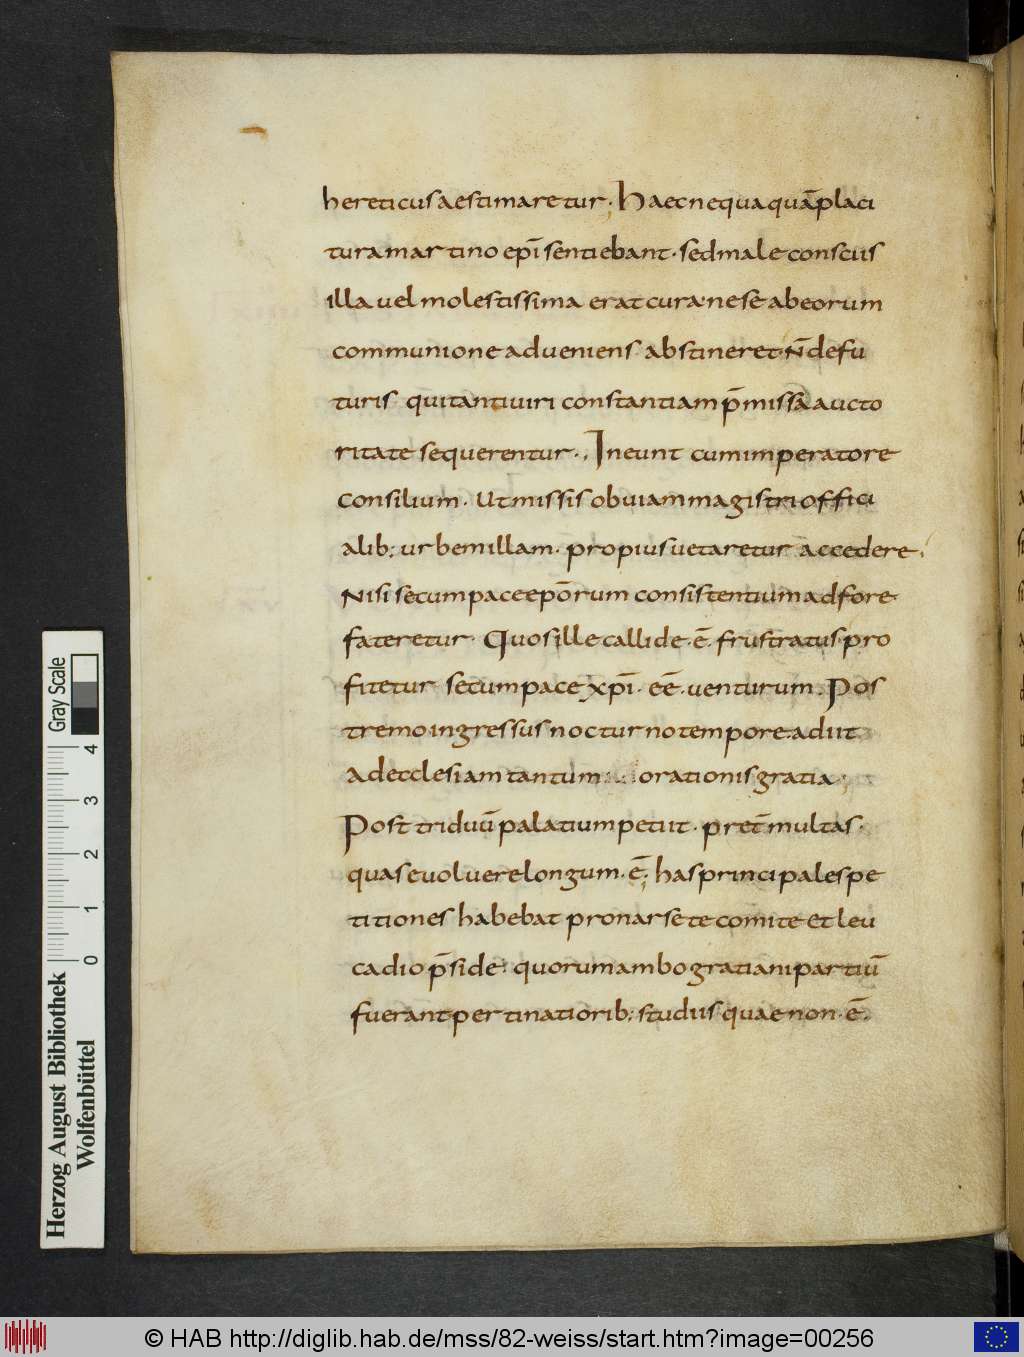 hereticus aestimaretur. Haec nequaquā placi
tura martino ep̄i sentiebant. sed male consciis
illa vel molestissima erat cura. ne se ab eorum
communione adveniens abstineret. N̄ defu
turis qui tanti viri constantiam p̄missa aucto
ritate sequerentur. Ineunt cum imperatore
consilium. Ut missis obviam magistri offici
alib; urbem illam. propius vetaretur accedere.
Nisi se cum pace ep̄orum consistentium adfore
fateretur. Quos ille callide .ē. frustratus. pro
fitetur se cum pace xp̄i. eē. venturum. Pos
tremo ingressus nocturno tempore. adiit
ad ecclesiam tantum orationis gratia;
Post triduū palatium petiit. pret̄ multas.
quas evolvere longum. ē; has principales pe
titiones habebat pro narsete comite et leu
cadio p̄side. quorum ambo gratiani partiū
fuerant pertinatiorib; studiis quae non .ē.
Gray Scale
4
3
2
1
0
Herzog August Bibliothek
Wolfenbüttel
© HAB http://diglib.hab.de/mss/82-weiss/start.htm?image=00256